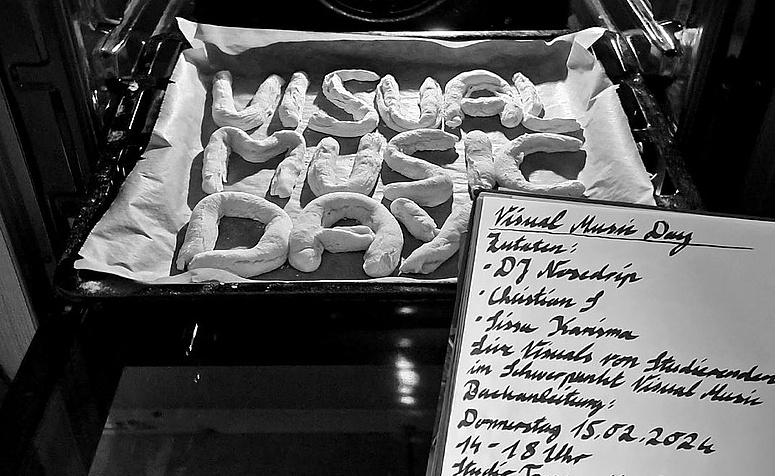 VISUAL
MUSIC
DAY
Visual Music Day
Zutaten:
· DJ Nosedrip
· Christian S
· Sissu Karisma
Live Visuals von Studierenden
im Schwerpunkt Visual Music
Backanleitung:
Donnerstag 15.02.2024
14 - 18 Uhr
Studio